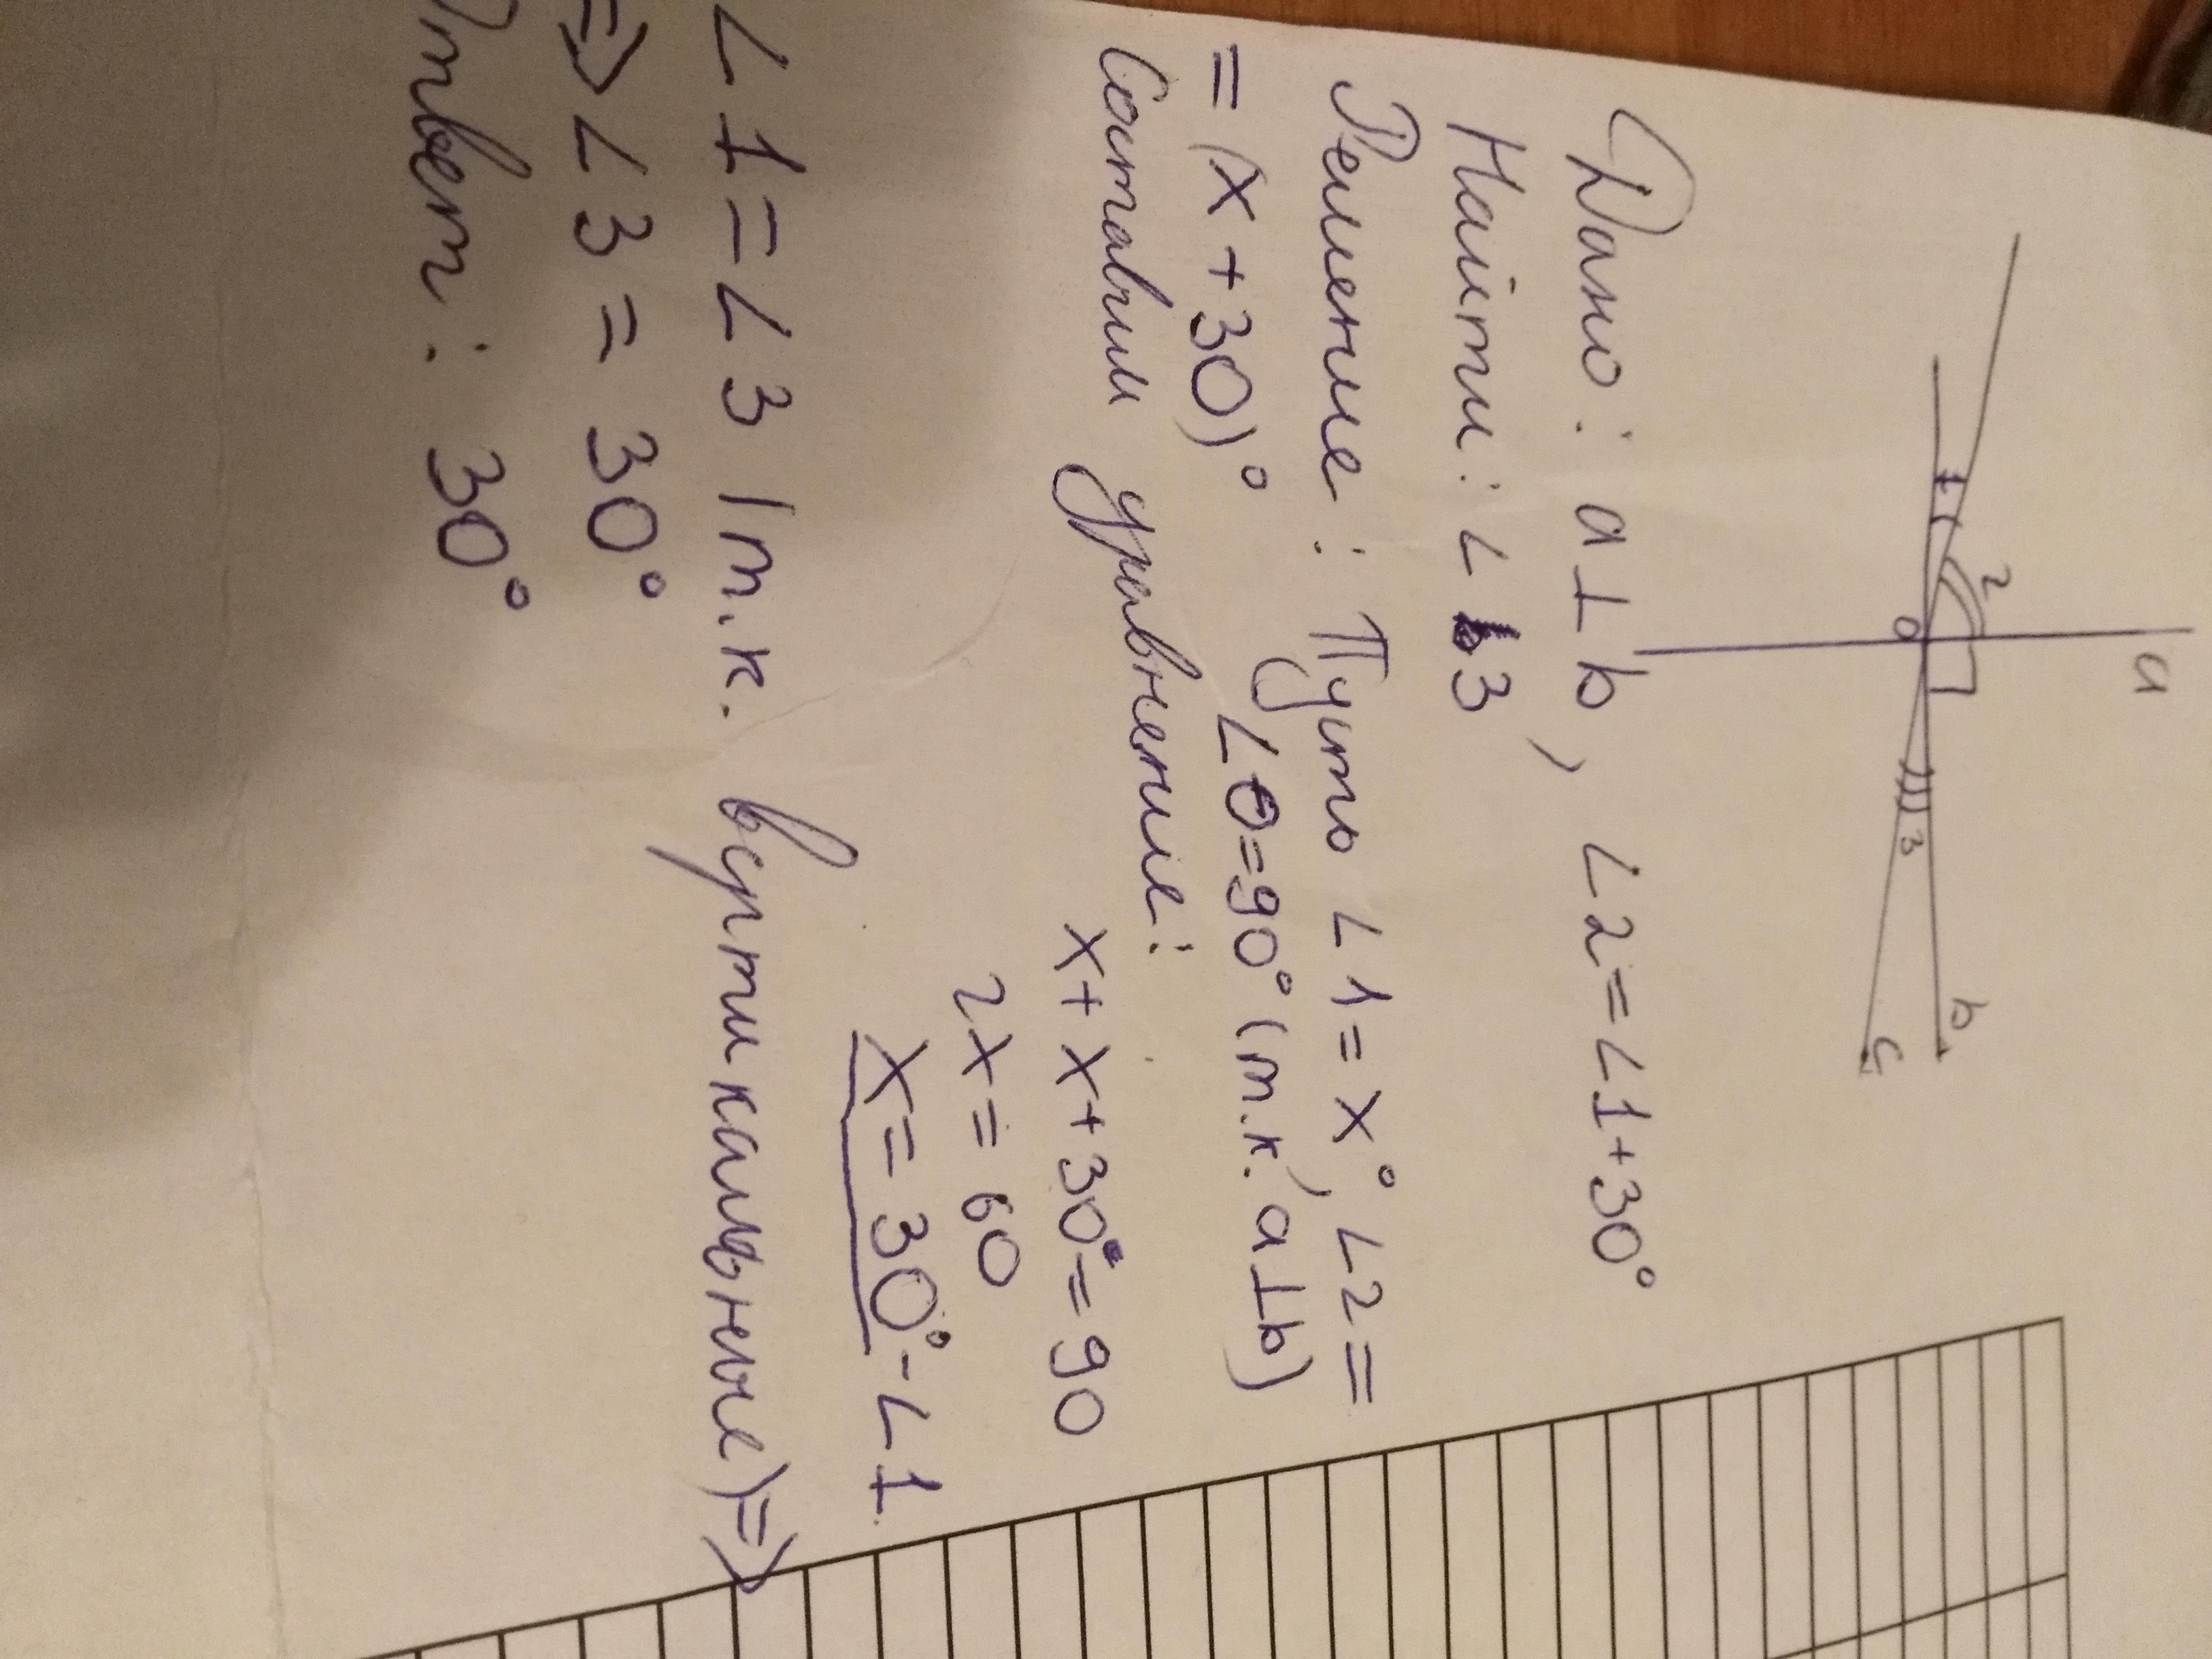 a
2
1
b
O
3
c
Дано: a⊥b, ∠2=∠1+30°
Найти: ∠3
Решение: Пусть ∠1=x°, ∠2=
=(x+30)° ∠O=90° (т.к. a⊥b)
Составим уравнение:
x+x+30°=90
2x=60
x=30°-∠1
∠1=∠3 (т.к. вертикальные)=>
=>∠3=30°
Ответ: 30°